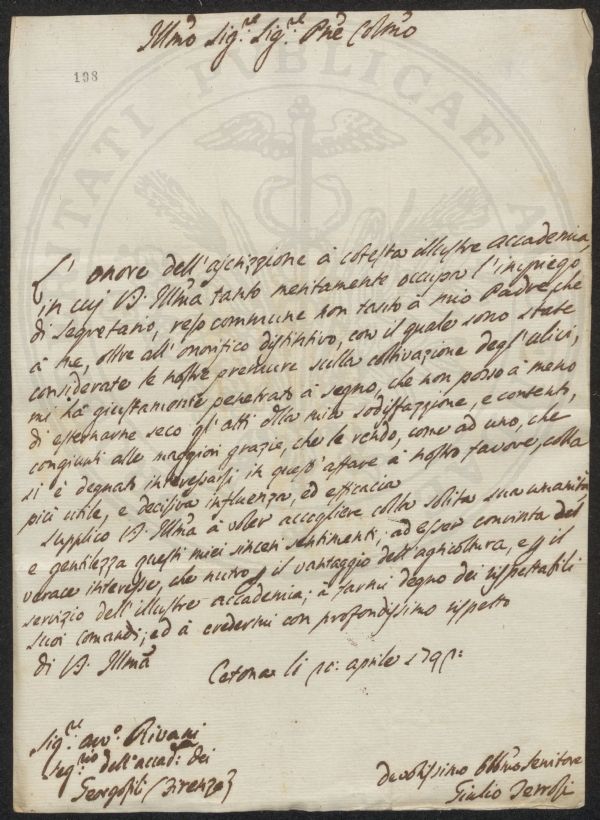 Illmo Sig.re Sig.re Pne Colmo
198
L'onore dell'ascrizzione à cotesta illustre accademia,
in cui V.S. Illma tanto meritamente occupa l'impiego
di Segretario, reso commune non tanto à mio Padre, che
à me, oltre all'onorifico distintivo, con il quale sono state
considerate le nostre premure sulla coltivazione degl'ulivi,
mi hà giustamente penetrato à segno, che non posso à meno
di esternarne seco gl'atti della mia sodisfazzione, e contento,
congiunti alle maggiori grazie, che le rendo, come ad uno, che
si è degnato interessarsi in quest'affare à nostro favore, colla
più utile, e decisiva influenza, ed efficacia
Supplico V.S. Illma à voler accogliere colla solita sua umanità,
e gentilezza questi miei sinceri sentimenti, ad esser convinta del
verace interesse, che nutro p il vantaggio dell'agricoltura, e p il
servizio dell'illustre accademia; à farmi degno dei rispettabili
suoi comandi; ed à credermi con profondissimo rispetto
di V.S. Illma
Cetona li aprile
Sig.re avv.o Rivani
Seg.rio dell'accad.a dei
Georgofili (Firenze)
devotissimo Obblmo Servitore
Giulio Terrosi
PUBLICAE